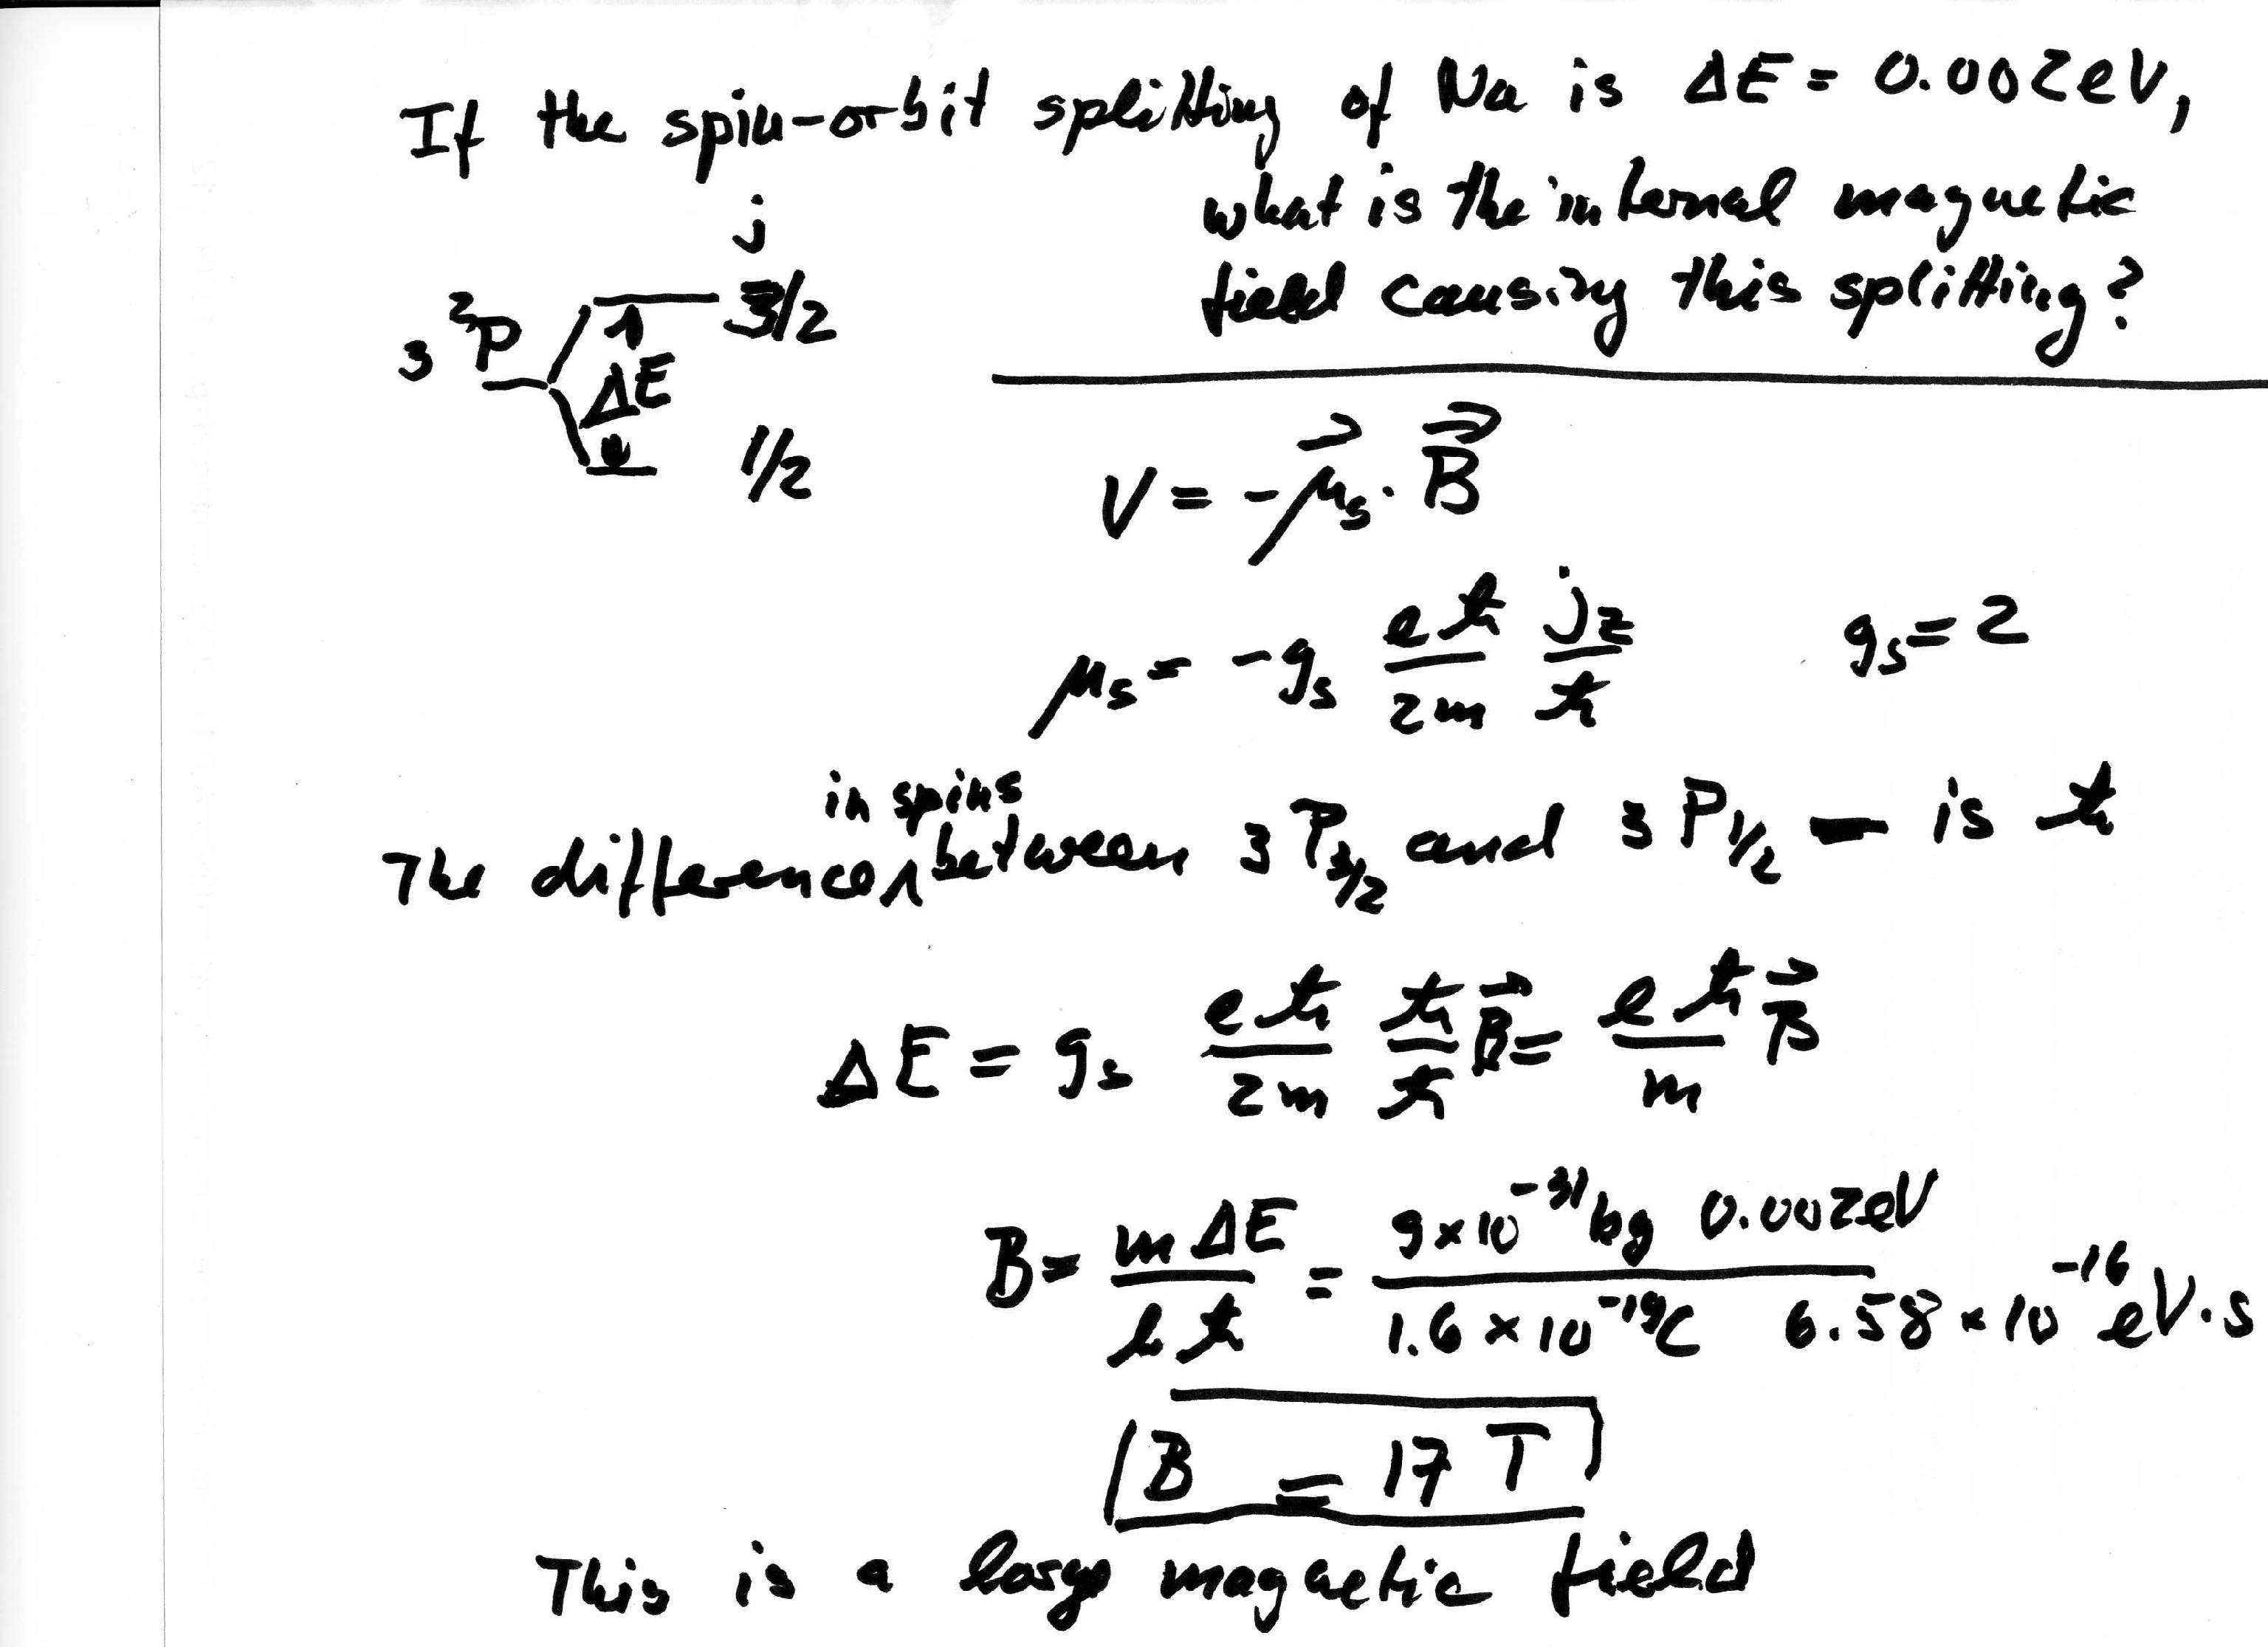 If the spin-orbit splitting of Na is ΔE = 0.002eV,
what is the internal magnetic
field causing this splitting?
j
3 ²P 3/2
ΔE
1/2
V = -μ⃗s · B⃗
μs = -gs eħ/2m jz/ħ gs = 2
in spins
The difference between 3P3/2 and 3P1/2 - is ħ
ΔE = gs eħ/2m ħ/ħ B⃗ = eħ/m B⃗
B = mΔE/eħ = 9×10^-31 kg 0.002eV / 1.6×10^-19 C 6.58×10^-16 eV·s
B = 17 T
This is a large magnetic field